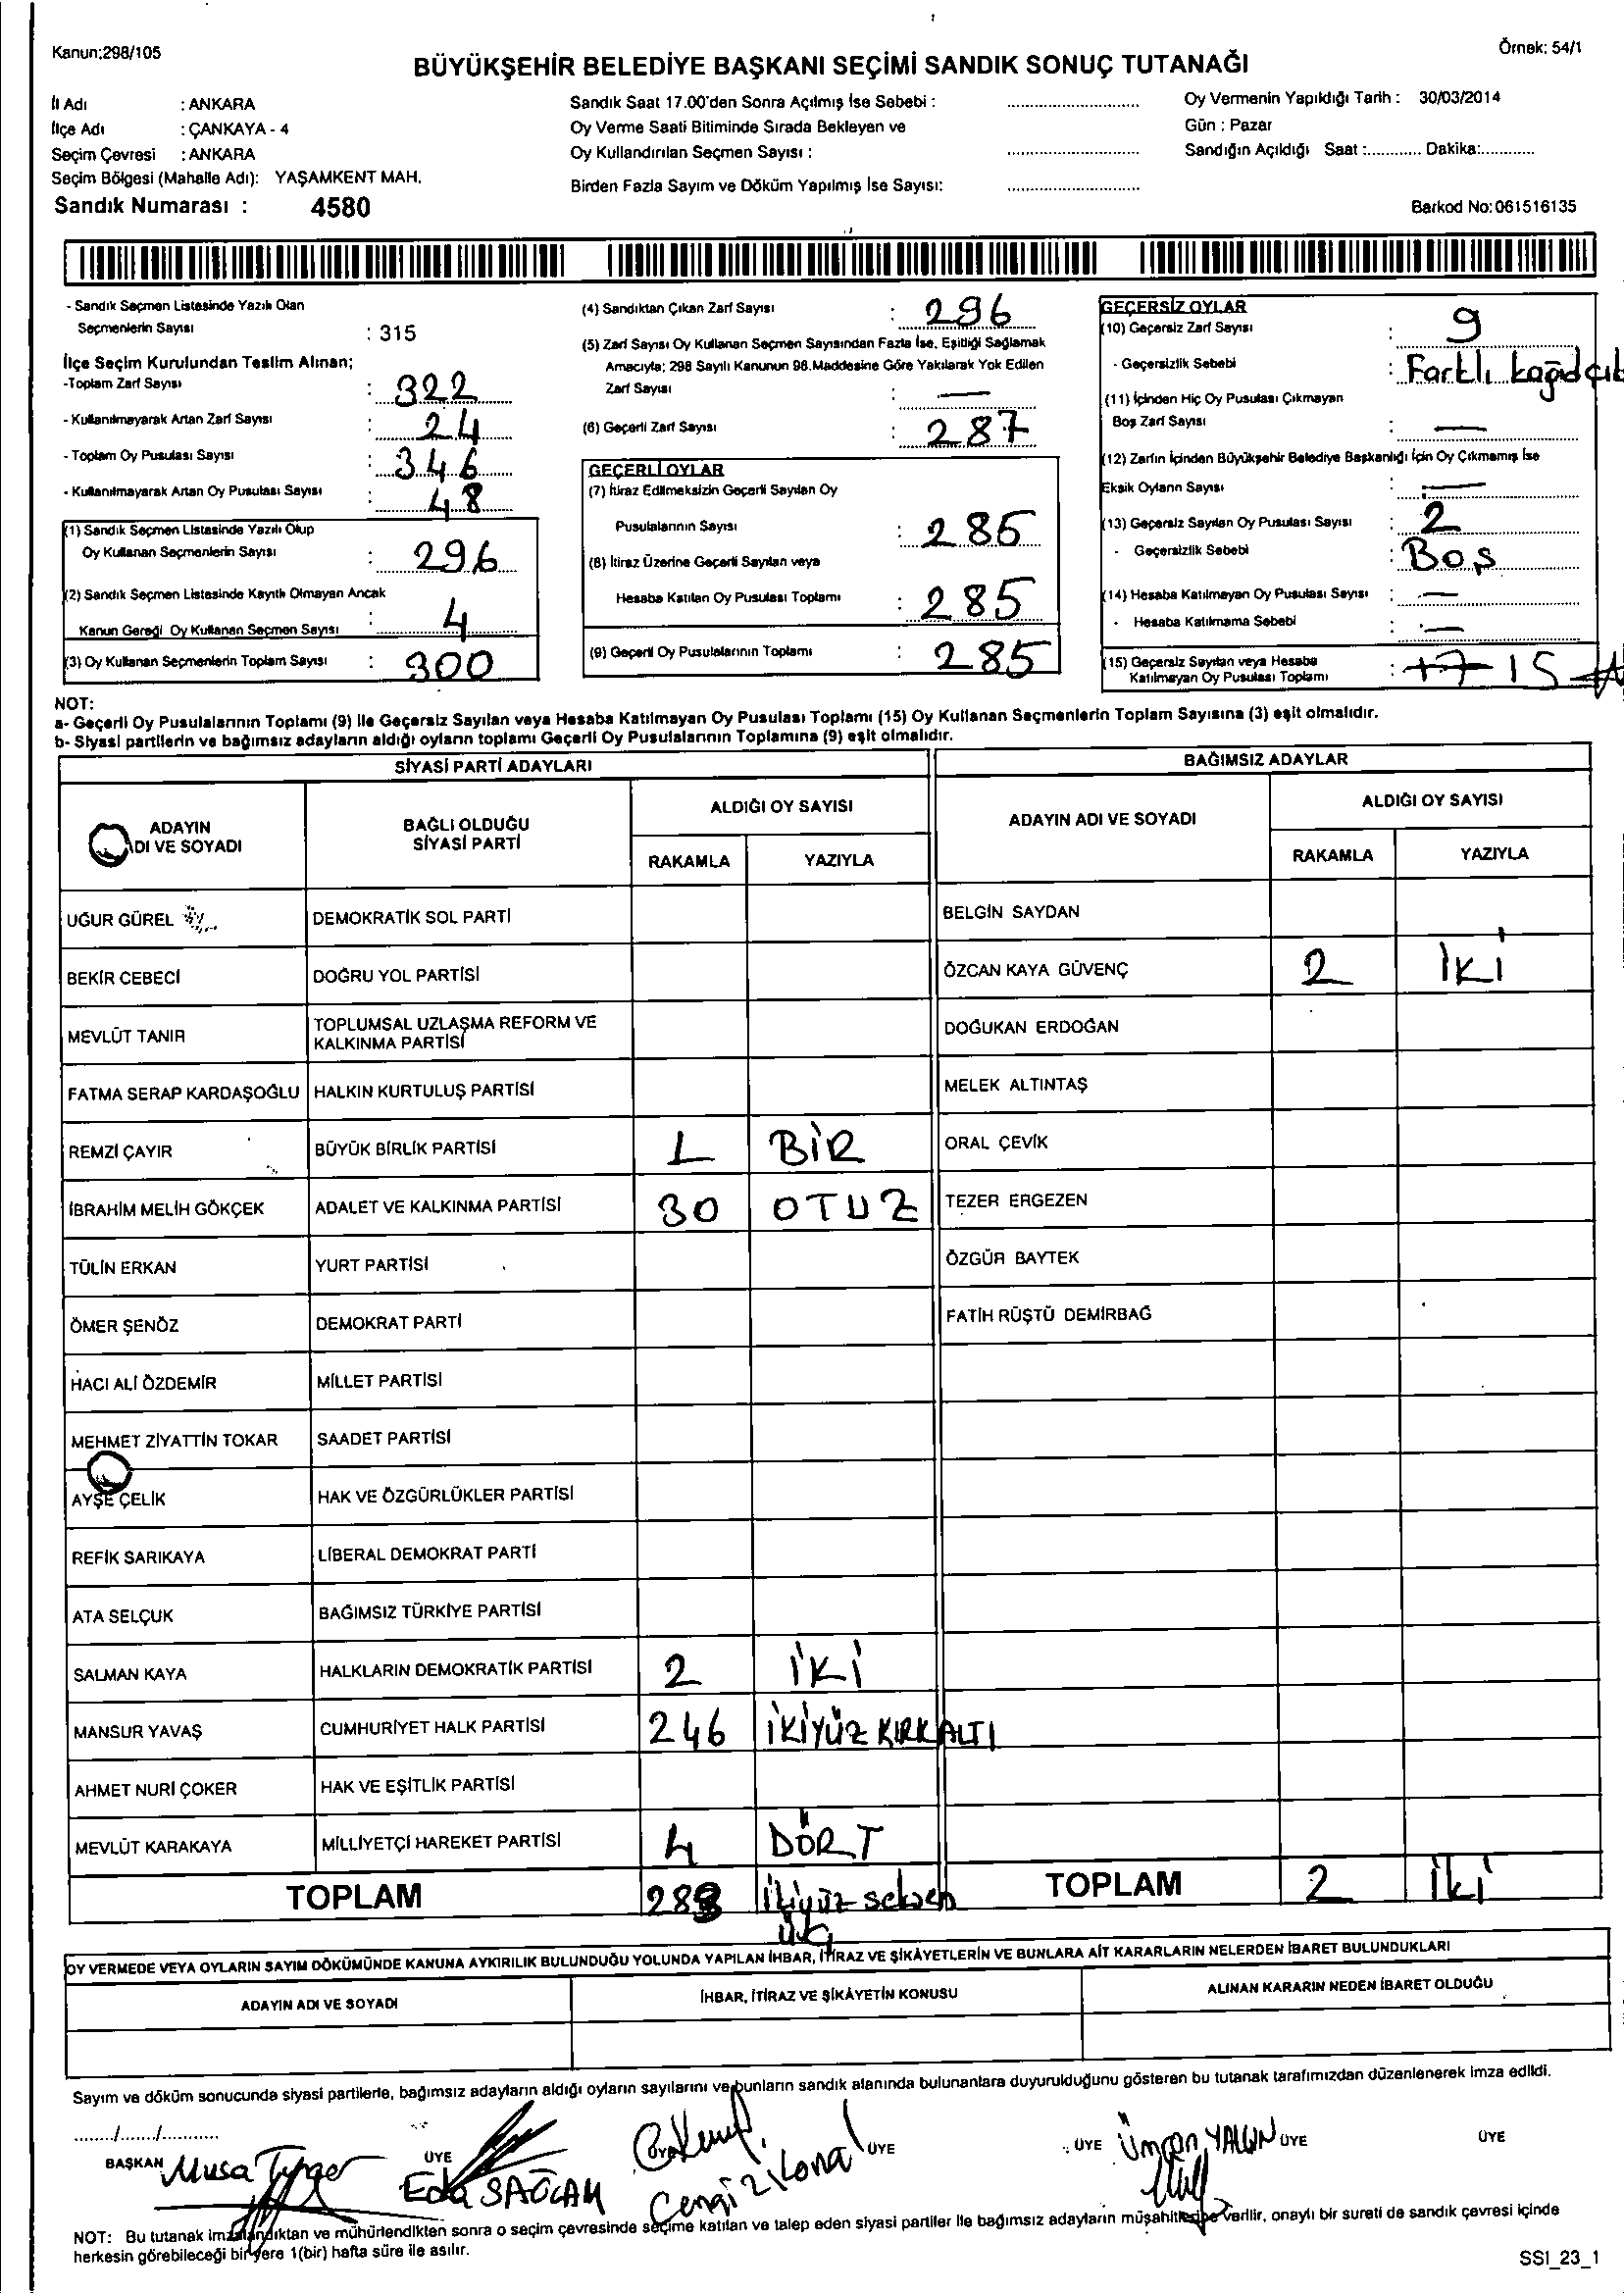 Kanun:298/105
Örnek: 54/1
BÜYÜKŞEHİR BELEDİYE BAŞKANI SEÇİMİ SANDIK SONUÇ TUTANAĞI
İl Adı : ANKARA
İlçe Adı : ÇANKAYA - 4
Seçim Çevresi : ANKARA
Seçim Bölgesi (Mahalle Adı): YAŞAMKENT MAH.
Sandık Numarası : 4580
Sandık Saat 17.00'den Sonra Açılmış İse Sebebi :
Oy Verme Saati Bitiminde Sırada Bekleyen ve
Oy Kullandırılan Seçmen Sayısı :
Birden Fazla Sayım ve Döküm Yapılmış İse Sayısı:
Oy Vermenin Yapıldığı Tarih : 30/03/2014
Gün : Pazar
Sandığın Açıldığı Saat :............ Dakika:............
Barkod No:061516135
- Sandık Seçmen Listesinde Yazılı Olan
Seçmenlerin Sayısı : 315
İlçe Seçim Kurulundan Teslim Alınan;
-Toplam Zarf Sayısı : 322
- Kullanılmayarak Artan Zarf Sayısı : 24
- Toplam Oy Pusulası Sayısı : 346
- Kullanılmayarak Artan Oy Pusulası Sayısı : 48
(1) Sandık Seçmen Listesinde Yazılı Olup
Oy Kullanan Seçmenlerin Sayısı : 296
(2) Sandık Seçmen Listesinde Kayıtlı Olmayan Ancak
Kanun Gereği Oy Kullanan Seçmen Sayısı : 4
(3) Oy Kullanan Seçmenlerin Toplam Sayısı : 300
(4) Sandıktan Çıkan Zarf Sayısı : 296
(5) Zarf Sayısı Oy Kullanan Seçmen Sayısından Fazla İse, Eşitliği Sağlamak
Amacıyla; 298 Sayılı Kanunun 98.Maddesine Göre Yakılarak Yok Edilen
Zarf Sayısı : —
(6) Geçerli Zarf Sayısı : 287
GEÇERLİ OYLAR
(7) İtiraz Edilmeksizin Geçerli Sayılan Oy
Pusulalarının Sayısı : 285
(8) İtiraz Üzerine Geçerli Sayılan veya
Hesaba Katılan Oy Pusulası Toplamı : 285
(9) Geçerli Oy Pusulalarının Toplamı : 285
GEÇERSİZ OYLAR
(10) Geçersiz Zarf Sayısı : 9
- Geçersizlik Sebebi : Farklı kağıd çık
(11) İçinden Hiç Oy Pusulası Çıkmayan
Boş Zarf Sayısı : —
(12) Zarfın İçinden Büyükşehir Belediye Başkanlığı İçin Oy Çıkmamış İse
Eksik Oyların Sayısı : —
(13) Geçersiz Sayılan Oy Pusulası Sayısı : 2
- Geçersizlik Sebebi : Boş
(14) Hesaba Katılmayan Oy Pusulası Sayısı : —
- Hesaba Katılmama Sebebi : —
(15) Geçersiz Sayılan veya Hesaba
Katılmayan Oy Pusulası Toplamı : 17 15
NOT:
a- Geçerli Oy Pusulalarının Toplamı (9) ile Geçersiz Sayılan veya Hesaba Katılmayan Oy Pusulası Toplamı (15) Oy Kullanan Seçmenlerin Toplam Sayısına (3) eşit olmalıdır.
b- Siyasi partilerin ve bağımsız adayların aldığı oyların toplamı Geçerli Oy Pusulalarının Toplamına (9) eşit olmalıdır.
SİYASİ PARTİ ADAYLARI
BAĞIMSIZ ADAYLAR
ADAYIN
ADI VE SOYADI
BAĞLI OLDUĞU
SİYASİ PARTİ
ALDIĞI OY SAYISI
RAKAMLA YAZIYLA
ADAYIN ADI VE SOYADI
ALDIĞI OY SAYISI
RAKAMLA YAZIYLA
UĞUR GÜREL DEMOKRATİK SOL PARTİ
BELGİN SAYDAN
BEKİR CEBECİ DOĞRU YOL PARTİSİ
ÖZCAN KAYA GÜVENÇ 2 İKİ
MEVLÜT TANIR TOPLUMSAL UZLAŞMA REFORM VE
KALKINMA PARTİSİ
DOĞUKAN ERDOĞAN
FATMA SERAP KARDAŞOĞLU HALKIN KURTULUŞ PARTİSİ
MELEK ALTINTAŞ
REMZİ ÇAYIR BÜYÜK BİRLİK PARTİSİ 1 BİR
ORAL ÇEVİK
İBRAHİM MELİH GÖKÇEK ADALET VE KALKINMA PARTİSİ 30 OTUZ
TEZER ERGEZEN
TÜLİN ERKAN YURT PARTİSİ
ÖZGÜR BAYTEK
ÖMER ŞENÖZ DEMOKRAT PARTİ
FATİH RÜŞTÜ DEMİRBAĞ
HACI ALİ ÖZDEMİR MİLLET PARTİSİ
MEHMET ZİYATTİN TOKAR SAADET PARTİSİ
AYŞE ÇELİK HAK VE ÖZGÜRLÜKLER PARTİSİ
REFİK SARIKAYA LİBERAL DEMOKRAT PARTİ
ATA SELÇUK BAĞIMSIZ TÜRKİYE PARTİSİ
SALMAN KAYA HALKLARIN DEMOKRATİK PARTİSİ 2 İKİ
MANSUR YAVAŞ CUMHURİYET HALK PARTİSİ 246 İKİYÜZ KIRKALTI
AHMET NURİ ÇOKER HAK VE EŞİTLİK PARTİSİ
MEVLÜT KARAKAYA MİLLİYETÇİ HAREKET PARTİSİ 4 DÖRT
TOPLAM 283 İkiyüz seksen
üç
TOPLAM 2 İki
OY VERMEDE VEYA OYLARIN SAYIM DÖKÜMÜNDE KANUNA AYKIRILIK BULUNDUĞU YOLUNDA YAPILAN İHBAR, İTİRAZ VE ŞİKÂYETLERİN VE BUNLARA AİT KARARLARIN NELERDEN İBARET BULUNDUKLARI
ADAYIN ADI VE SOYADI
İHBAR, İTİRAZ VE ŞİKÂYETİN KONUSU
ALINAN KARARIN NEDEN İBARET OLDUĞU
Sayım ve döküm sonucunda siyasi partilerle, bağımsız adayların aldığı oyların sayılarını ve bunların sandık alanında bulunanlara duyurulduğunu gösteren bu tutanak tarafımızdan düzenlenerek imza edildi.
......../......../............
BAŞKAN Musa
ÜYE Eda SAĞLAM
ÜYE Cengiz
ÜYE
ÜYE YALÇIN
ÜYE
ÜYE
NOT: Bu tutanak imzalandıktan ve mühürlendikten sonra o seçim çevresinde seçime katılan ve talep eden siyasi partiler ile bağımsız adayların müşahitlerine verilir, onaylı bir sureti de sandık çevresi içinde
herkesin görebileceği bir yere 1(bir) hafta süre ile asılır.
SSI_23_1